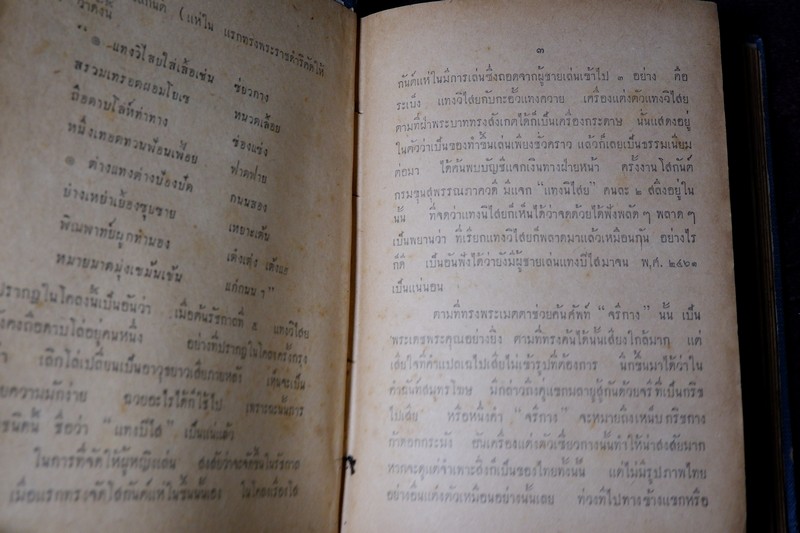 แรกทรงพระราชดำริคิดให้
ว่าดังนี้
" ๑ แทงวิไสยใส่เสื้อเช่น ซ่ยวกาง
สรวมเทรอดผอมโยเซ หนวดเฟื้อย
ถือดาบโล่ห์ทำทาง ช่องแช่ง
หนึ่งเทอดทวนพ้อนเพื้อย ฟาดฟาย
๑ ต่างแทงต่างป้องปัด กนนลอง
ย่างเหย่าย้องซุบซาย เหยาะเต้น
พิณพาทย์ผูกทำนอง เต้งเตุ้ง เต้งแฮ
หมายมาดมุ่งเขม้นเข้น แก่กนน ฯ "
ปรากฏในโคลงนี้เป็นอันว่า เมื่อต้นรัชกาลที่ ๕ แทงวิไสย
คงถือดาบโล่อยู่คนหนึ่ง อย่างที่ปรากฏในโคลงครั้งกรุง
เลิกโล่เปลี่ยนเป็นอาวุธยาวเสียภายหลัง เห็นจะเป็น
ความมักง่าย ฉวยอะไรได้ก็ใช้ไป เพราะฉะนั้นการ
ชนิดนี้ ชื่อว่า "แทงบิไส" เป็นแน่แล้ว
ในการที่จัดให้ผู้หญิงเล่น สงสัยว่าจะจัดขึ้นในรัชกาล
เมื่อแรกทรงจัดโสกันต์แห่ในชั้นนั้นเอง ในโคลงเรื่องโส
๓
กันต์แห่ในมีการเล่นซึ่งถอดจากผู้ชายเล่นเข้าไป ๓ อย่าง คือ
ระเบ็ง แทงวิไสยกับกะอั้วแทงควาย เครื่องแต่งตัวแทงวิไสย
ตามที่ฝ่าพระบาททรงสังเกตได้ก็เป็นเครื่องกระดาษ นั้นแสดงอยู่
ในตัวว่าเป็นของทำขึ้นเล่นเพียงชั่วคราว แล้วก็เลยเป็นธรรมเนียม
ต่อมา ได้ค้นพบบัญชีแจกเงินทางฝ่ายหน้า ครั้งงานโสกันต์
กรมขุนสุพรรณภาควดี มีแจก "แทงนิไสย" คนละ ๒ สลึงอยู่ใน
นั้น ที่จดว่าแทงนิไสยก็เห็นได้ว่าจดด้วยได้ฟังพลัด ๆ พลาด ๆ
เป็นพยานว่า ที่เรียกแทงวิไสยก็พลาดมาแล้วเหมือนกัน อย่างไร
ก็ดี เป็นอันฟังได้ว่ายังมีผู้ชายเล่นแทงบิไสมาจน พ.ศ. ๒๔๖๑
เป็นแน่นอน
ตามที่ทรงพระเมตตาช่วยค้นศัพท์ "จรีกาง" นั้น เป็น
พระเดชพระคุณอย่างยิ่ง ตามที่ทรงค้นได้นั้นเสียงใกล้มาก แต่
เสียใจที่คำแปลเฉไปเสียไม่เข้ารูปที่ต้องการ นึกขึ้นมาได้ว่าใน
คำฉันท์สมุทรโฆษ มีกล่าวถึงคู่แขกมลายูสู้กันด้วยจรีที่เป็นกริช
ไปเสีย หรือหนึ่งคำ "จรีกาง" จะหมายถึงเหน็บกริชกาง
ก้าดอกกระมัง อันเครื่องแต่งตัวเซี่ยวกางนั้นทำให้น่าสงสัยมาก
หากจะดูแต่จำเพาะสิ่งก็เป็นของไทยทั้งนั้น แต่ไม่มีรูปภาพไทย
อย่างอื่นแต่งตัวเหมือนอย่างนั้นเลย ท่วงทีไปทางข้างแขกหรือ